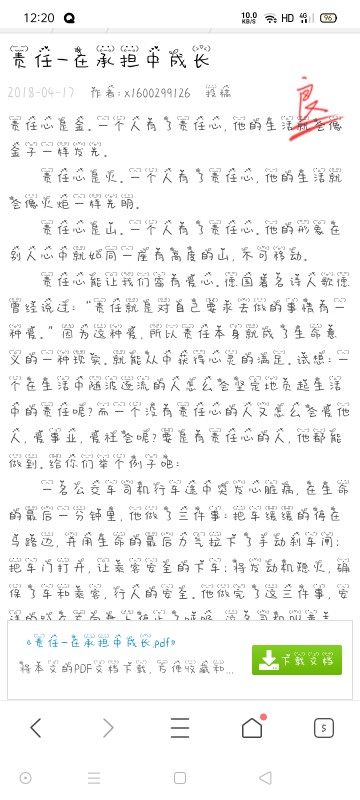 12:20
10.0 KB/S HD 4G 96
责任—在承担中成长
2018-04-17 作者:x1600299126 投稿
良
责任心是金。一个人有了责任心,他的生活就会像
金子一样发光。
责任心是火。一个人有了责任心,他的生活就
会像火炬一样光明。
责任心是山。一个人有了责任心。他的形象在
别人心中就如同一座有高度的山,不可移动。
责任心能让我们富有爱心。德国著名诗人歌德
曾经说过:“责任就是对自己要求去做的事情有一
种爱。”因为这种爱,所以责任本身就成了生命意
义的一种现实,就能从中获得心灵的满足。试想:一
个在生活中随波逐流的人怎么会坚定地负起生活
中的责任呢?而一个没有责任心的人又怎么会爱他
人,爱事业,爱社会呢?要是有责任心的人,他都能
做到。给你们举个例子吧:
一名公交车司机行车途中突发心脏病,在生命
的最后一分钟里,他做了三件事:把车缓缓的停在
马路边,并用生命的最后力气拉下了手动刹车闸;
把车门打开,让乘客安全的下车;将发动机熄火,确
保了车和乘客,行人的安全。他做完了这三件事,安
《责任—在承担中成长.pdf》
将本文的PDF文档下载,方便收藏和...
下载文档
5